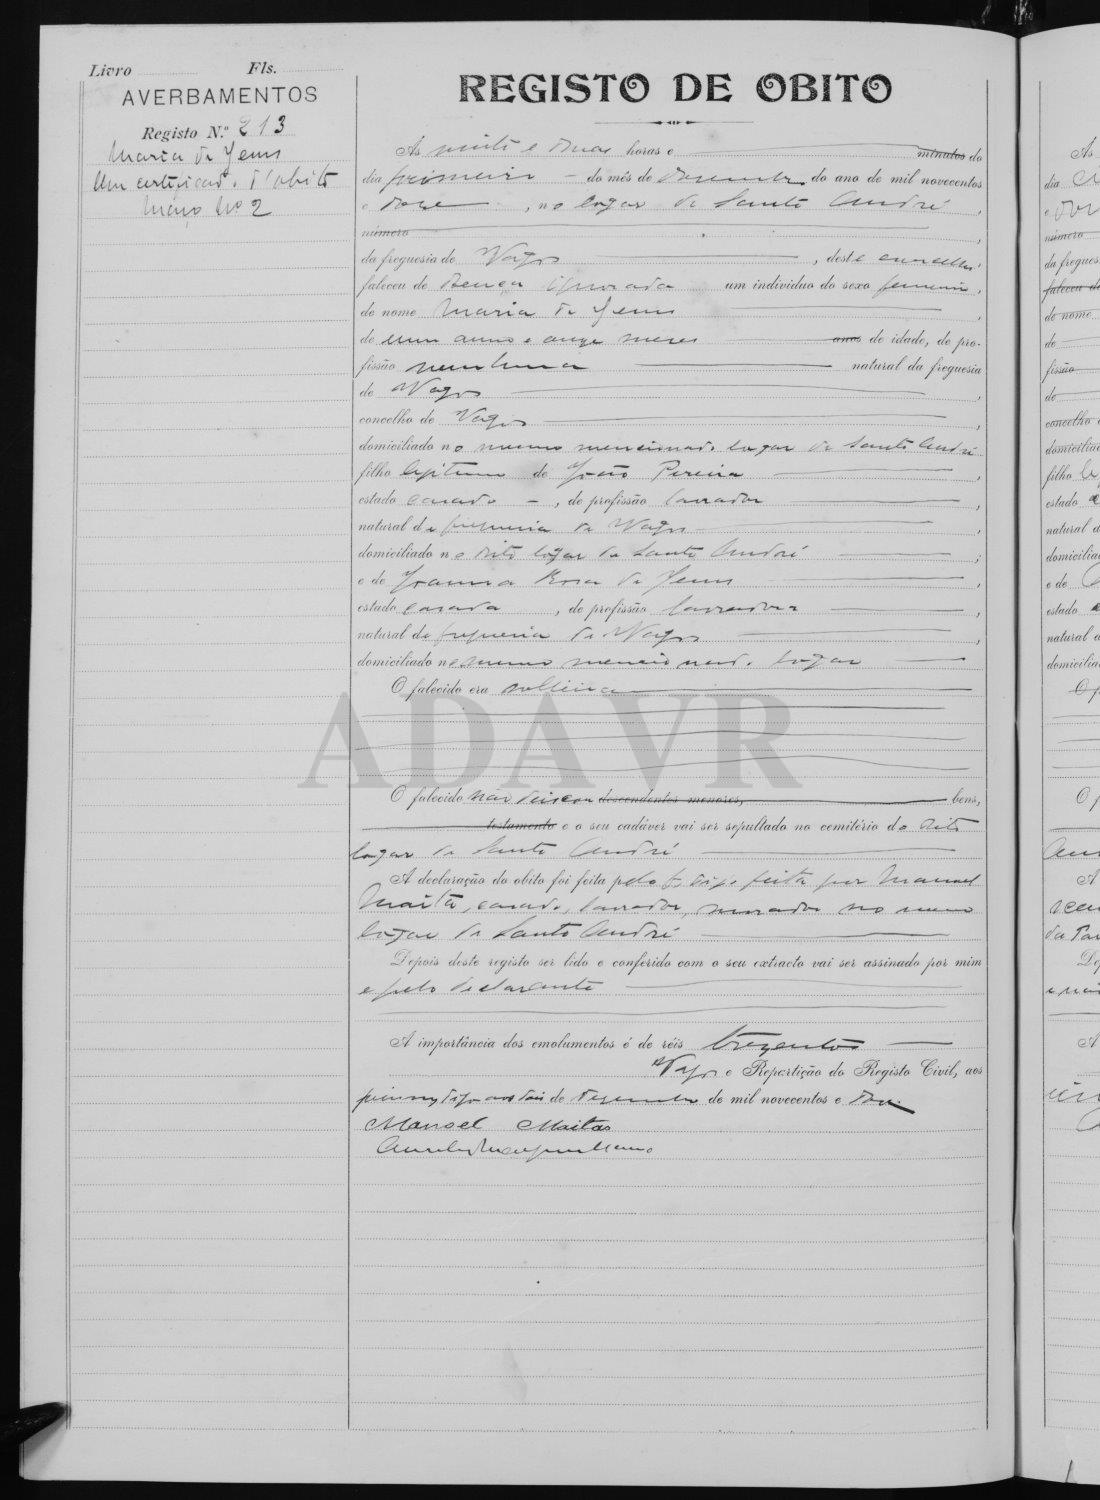 Livro Fls.
AVERBAMENTOS
Registo N.º 213
Maria de Jesus
Um certificado d'obito
Maço Nº 2
REGISTO DE OBITO
Às vinte e duas horas e minutos do
dia primeiro do mês de Dezembro do ano de mil novecentos
e doze, no logar de Santo André,
número
da freguesia de Vagos, deste concelho
faleceu de doença ignorada um individuo do sexo femenino,
de nome Maria de Jesus,
de um anno e onze meses anos de idade, de pro-
fissão nenhuma natural da freguesia
de Vagos,
concelho de Vagos,
domiciliado no mesmo mencionado logar de Santo André
filho legitimo de João Pereira,
estado casado, de profissão lavrador
natural da freguesia de Vagos,
domiciliado no dito logar de Santo André
e de Joanna Rosa de Jesus,
estado casada, de profissão lavradora,
natural da freguesia de Vagos,
domiciliado no mesmo mencionado logar
O falecido era solteira
ADAVR
O falecido não deixou descendentes menores, bens,
testamento e o seu cadáver vai ser sepultado no cemitério do dito
logar de Santo André
A declaração do obito foi feita pelo digo feita por Manoel
Maita, casado, lavrador, morador no mesmo
logar de Santo André
Depois deste registo ser lido e conferido com o seu extracto vai ser assinado por mim
e pelo declarante
A importância dos emolumentos é de réis trezentos
Vagos e Repartição do Registo Civil, aos
digo aos dois de Dezembro de mil novecentos e doze.
Manoel Maitas